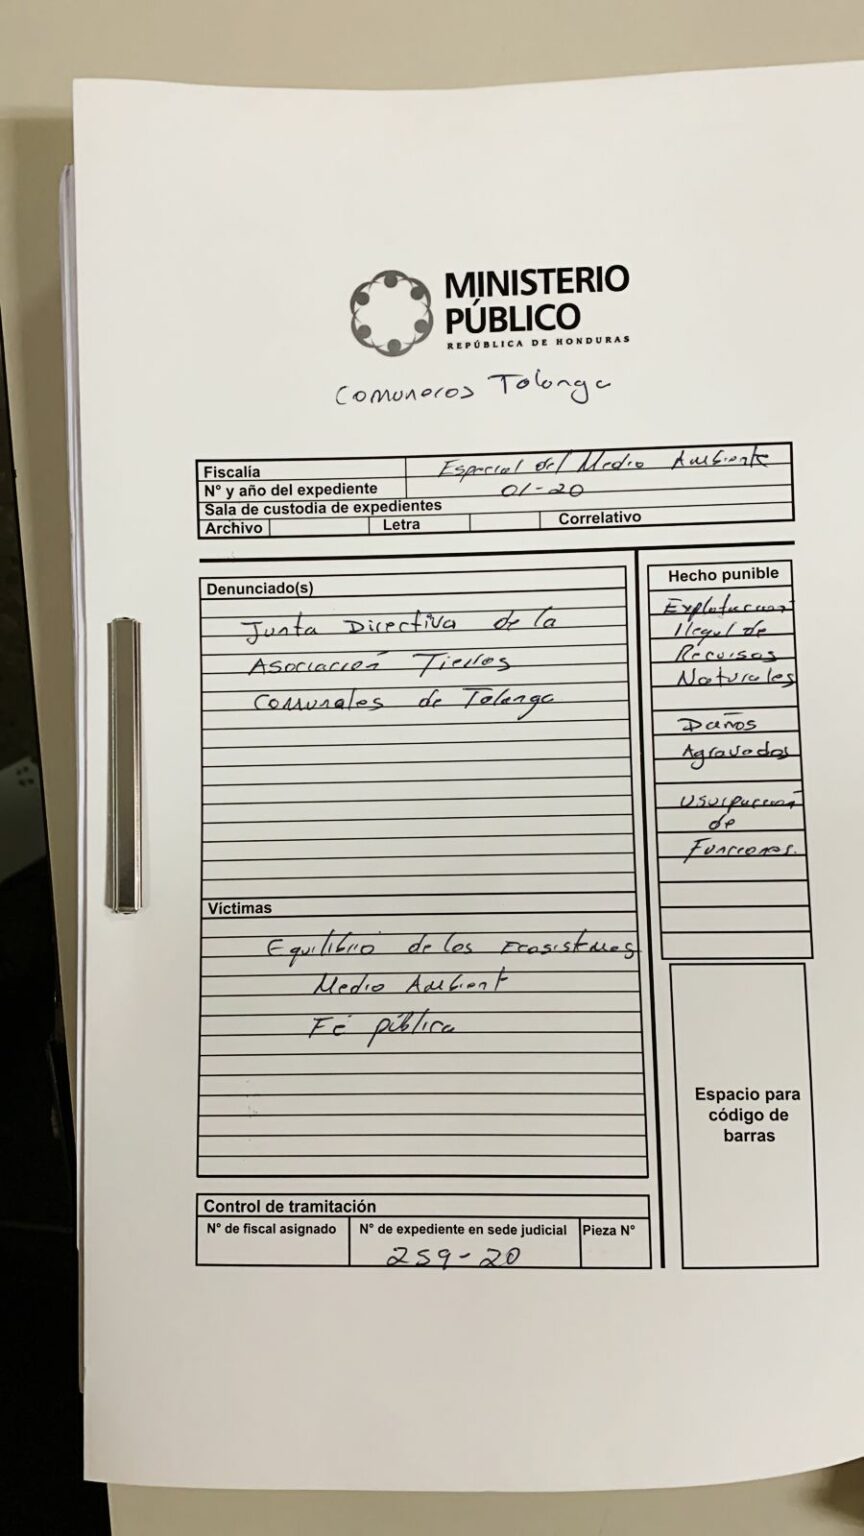 MINISTERIO
PÚBLICO
REPÚBLICA DE HONDURAS
Comuneros Tolonga
Fiscalía Especial del Medio Ambiente
N° y año del expediente 01-20
Sala de custodia de expedientes
Archivo Letra Correlativo
Denunciado(s)
Junta Directiva de la
Asociación Tierras
Comunales de Tolonga
Hecho punible
Explotacion
Ilegal de
Recursos
Naturales
Daños
Agravados
Usurpacion
de
Funciones.
Víctimas
Equilibrio de los Ecosistemas
Medio Ambient
Fé pública
Espacio para
código de
barras
Control de tramitación
N° de fiscal asignado N° de expediente en sede judicial Pieza N°
259-20